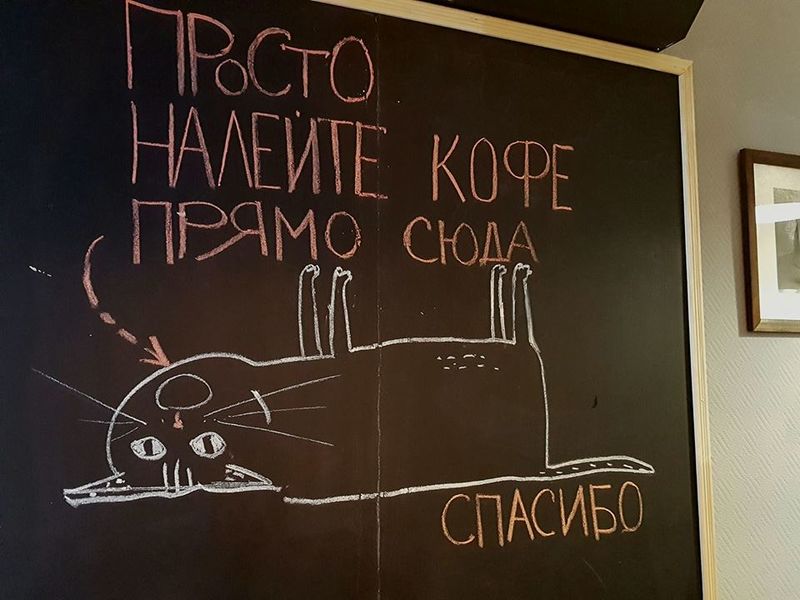 ПРОСТО
НАЛЕЙТЕ КОФЕ
ПРЯМО СЮДА
СПАСИБО